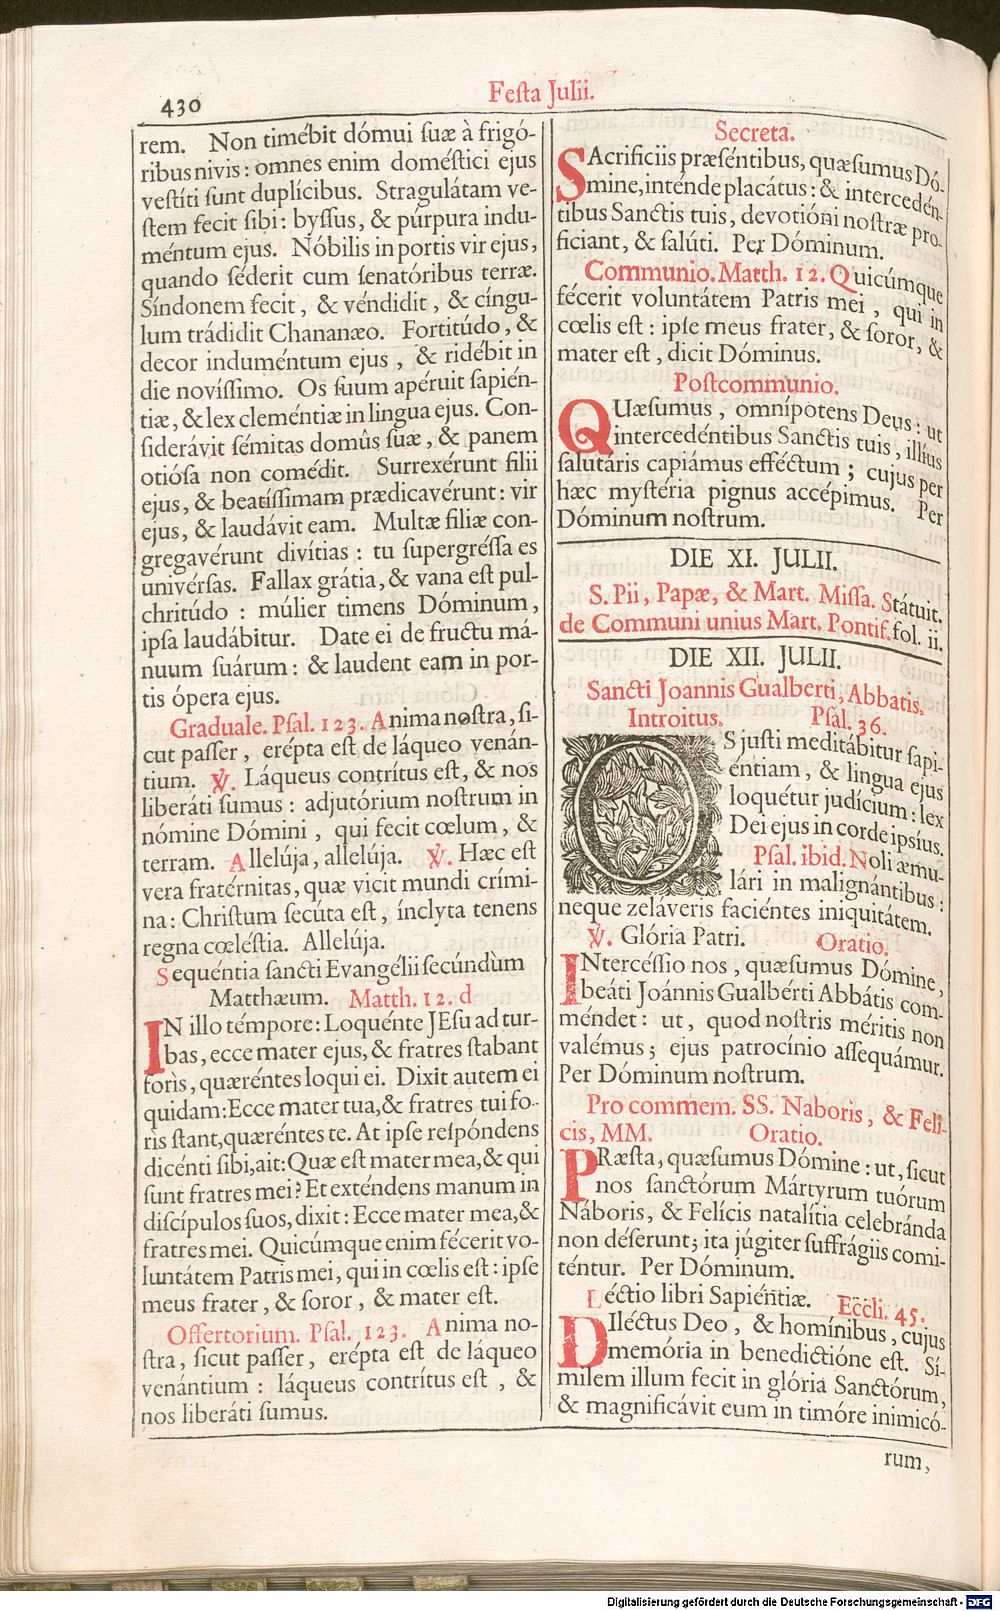 430
Festa Julii.
rem. Non timébit dómui suæ à frigó-
ribus nivis: omnes enim doméstici ejus
vestíti sunt duplícibus. Stragulátam ve-
stem fecit sibi: byssus, & púrpura indu-
méntum ejus. Nóbilis in portis vir ejus,
quando séderit cum senatóribus terræ.
Síndonem fecit, & véndidit, & cíngu-
lum trádidit Chananæo. Fortitúdo, &
decor induméntum ejus, & ridébit in
die novíssimo. Os suum apéruit sapién-
tiæ, & lex cleméntiæ in lingua ejus. Con-
siderávit sémitas domûs suæ, & panem
otiósa non comédit. Surrexérunt filii
ejus, & beatíssimam prædicavérunt: vir
ejus, & laudávit eam. Multæ filiæ con-
gregavérunt divítias: tu supergréssa es
univérsas. Fallax grátia, & vana est pul-
chritúdo: múlier timens Dóminum,
ipsa laudábitur. Date ei de fructu má-
nuum suárum: & laudent eam in por-
tis ópera ejus.
Graduale. Psal. 123. Anima nostra, si-
cut passer, erépta est de láqueo venán-
tium. ℣. Láqueus contrítus est, & nos
liberáti sumus: adjutórium nostrum in
nómine Dómini, qui fecit cœlum, &
terram. Allelúja, allelúja. ℣. Hæc est
vera fratérnitas, quæ vicit mundi crími-
na: Christum secúta est, ínclyta tenens
regna cœléstia. Allelúja.
Sequéntia sancti Evangélii secúndùm
Matthæum. Matth. 12. d
IN illo témpore: Loquénte JEsu ad tur-
bas, ecce mater ejus, & fratres stabant
foris, quæréntes loqui ei. Dixit autem ei
quidam: Ecce mater tua, & fratres tui fo-
ris stant, quæréntes te. At ipse respóndens
dicénti sibi, ait: Quæ est mater mea, & qui
sunt fratres mei? Et exténdens manum in
discípulos suos, dixit: Ecce mater mea, &
fratres mei. Quicúmque enim fécerit vo-
luntátem Patris mei, qui in cœlis est: ipse
meus frater, & soror, & mater est.
Offertorium. Psal. 123. Anima no-
stra, sicut passer, erépta est de láqueo
venántium: láqueus contrítus est, &
nos liberáti sumus.
Secreta.
SAcrificiis præséntibus, quæsumus Dó-
mine, inténde placátus: & intercedén-
tibus Sanctis tuis, devotióni nostræ pro-
ficiant, & salúti. Per Dóminum.
Communio. Matth. 12. Quicúmque
fécerit voluntátem Patris mei, qui in
cœlis est: ipse meus frater, & soror, &
mater est, dicit Dóminus.
Postcommunio.
QUæsumus, omnípotens Deus: ut
intercedéntibus Sanctis tuis, illíus
salutáris capiámus efféctum; cujus per
hæc mystéria pignus accépimus. Per
Dóminum nostrum.
DIE XI. JULII.
S. Pii, Papæ, & Mart. Missa. Státuit.
de Communi unius Mart. Pontif. fol. ii.
DIE XII. JULII.
Sancti Joannis Gualberti, Abbatis.
Introitus. Psal. 36.
OS justi meditábitur sapi-
éntiam, & lingua ejus
loquétur judícium: lex
Dei ejus in corde ipsíus.
Psal. ibid. Noli æmu-
lári in malignántibus:
neque zeláveris faciéntes iniquitátem.
℣. Glória Patri. Oratio.
INtercéssio nos, quæsumus Dómine,
beáti Joánnis Gualbérti Abbátis com-
méndet: ut, quod nostris méritis non
valémus; ejus patrocínio assequámur.
Per Dóminum nostrum.
Pro commem. SS. Naboris, & Feli-
cis, MM. Oratio.
PRæsta, quæsumus Dómine: ut, sicut
nos sanctórum Mártyrum tuórum
Náboris, & Felícis natalítia celebránda
non déserunt; ita júgiter suffrágiis comi-
téntur. Per Dóminum.
Léctio libri Sapiéntiæ. Eccli. 45.
DIléctus Deo, & homínibus, cujus
memória in benedictióne est. Sí-
milem illum fecit in glória Sanctórum,
& magnificávit eum in timóre inimicó-
rum,
Digitalisierung gefördert durch die Deutsche Forschungsgemeinschaft - DFG